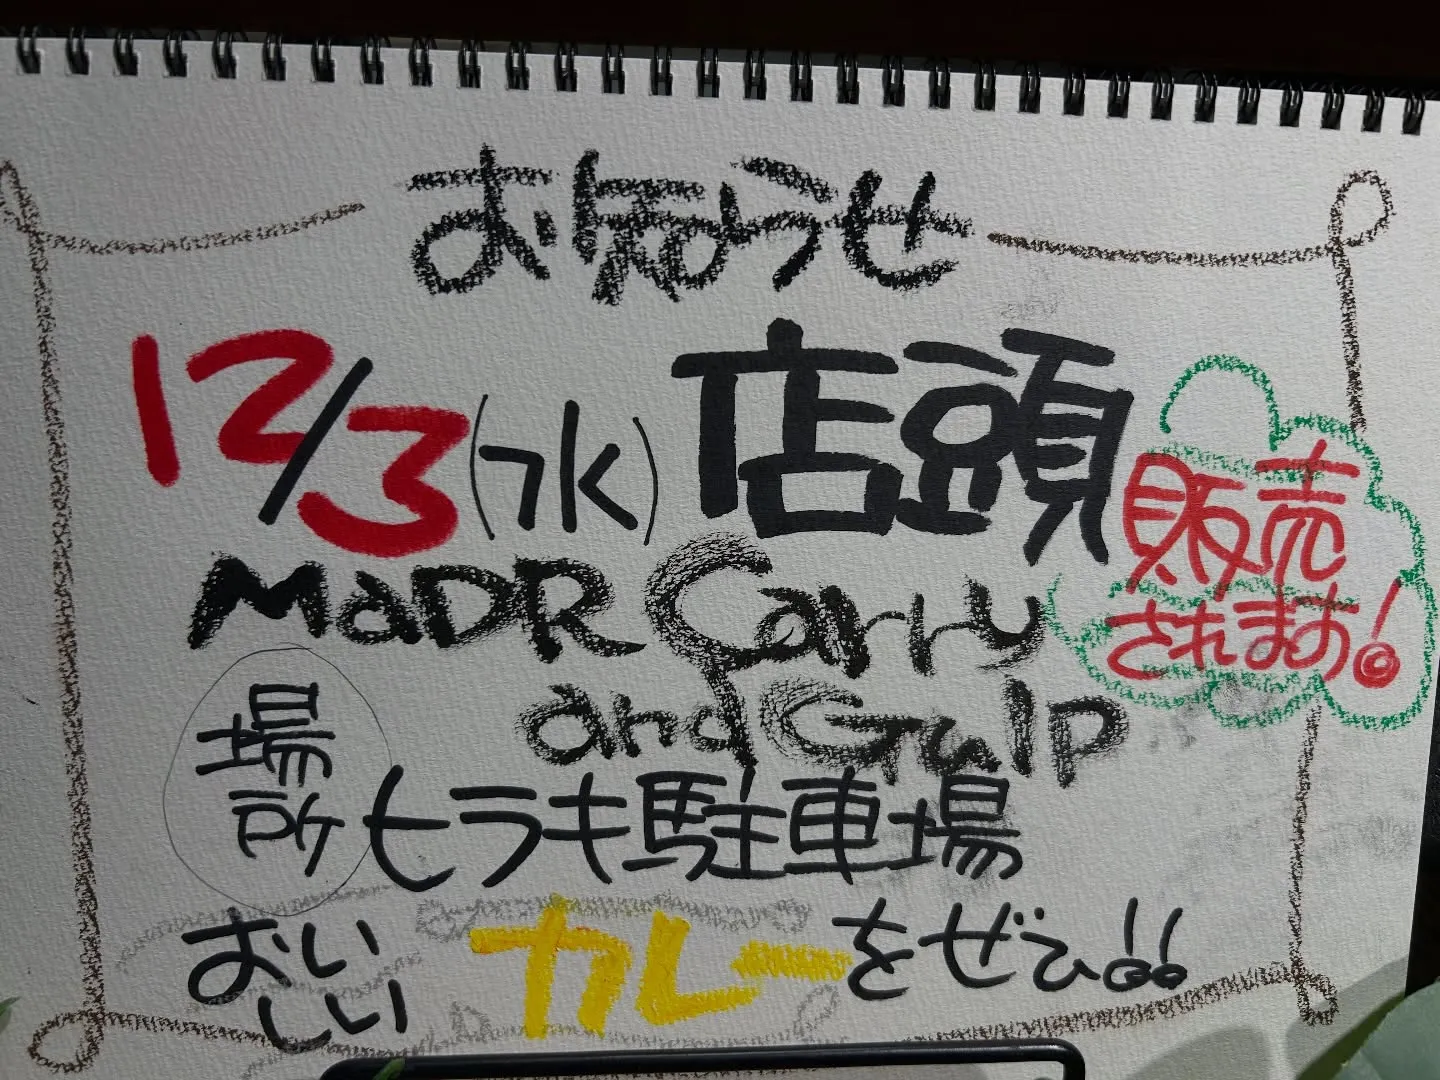 お知らせ
12/3(水)店頭
販売
されます!
MaDR Carry
and Gulp
場所 ヒラキ駐車場
おいしい カレーをぜひ!!